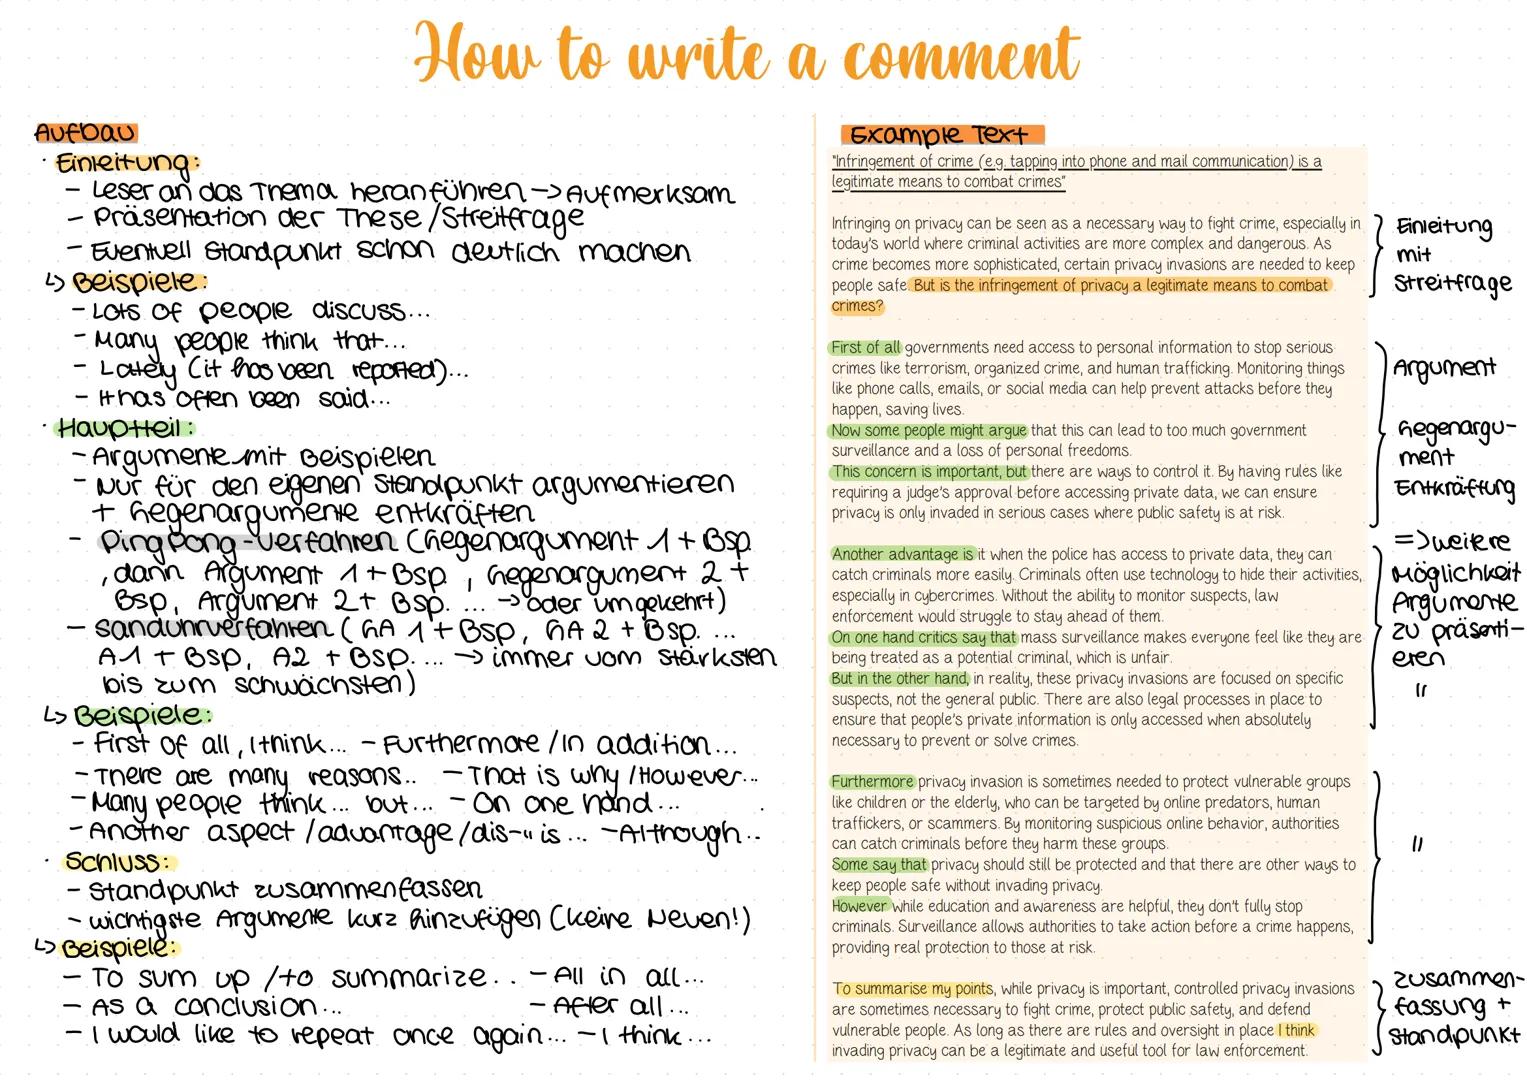 How to write a comment
Aufbau
· Einleitung:
- Leser an das Thema heranführen -> Aufmerksam
- Präsentation der These/Streitfrage
- Eventuell Standpunkt schon deutlich machen
↳ Beispiele:
- Lots of people discuss...
- Many people think that...
- Lately (it has been reported)...
- It has often been said...
· Hauptteil:
- Argumente mit Beispielen
- Nur für den eigenen Standpunkt argumentieren
+ Gegenargumente entkräften
- Ping Pong-Verfahren (Gegenargument 1 + Bsp
, dann Argument 1 + Bsp, Gegenargument 2 +
Bsp, Argument 2 + Bsp. ... -> oder umgekehrt)
- Sanduhrverfahren (GA 1 + Bsp, GA 2 + Bsp. ...
A1 + Bsp, A2 + Bsp. ... -> immer vom stärksten
bis zum schwächsten)
↳ Beispiele:
- First of all, I think... - Furthermore/In addition...
- There are many reasons.. - That is why/However...
- Many people think... but... - On one hand...
- Another aspect/advantage/dis-" is... - Although..
· Schluss:
- Standpunkt zusammenfassen
- wichtigste Argumente kurz hinzufügen (keine Neuen!)
↳ Beispiele:
- To sum up/to summarize.. - All in all...
- As a conclusion... - After all...
- I would like to repeat once again... - I think...
Example Text
"Infringement of crime (e.g. tapping into phone and mail communication) is a
legitimate means to combat crimes"
Infringing on privacy can be seen as a necessary way to fight crime, especially in
today's world where criminal activities are more complex and dangerous. As
crime becomes more sophisticated, certain privacy invasions are needed to keep
people safe. But is the infringement of privacy a legitimate means to combat
crimes?
Einleitung
mit
Streitfrage
First of all governments need access to personal information to stop serious
crimes like terrorism, organized crime, and human trafficking. Monitoring things
like phone calls, emails, or social media can help prevent attacks before they
happen, saving lives.
Now some people might argue that this can lead to too much government
surveillance and a loss of personal freedoms.
This concern is important, but there are ways to control it. By having rules like
requiring a judge's approval before accessing private data, we can ensure
privacy is only invaded in serious cases where public safety is at risk.
Argument
Gegenargu-
ment
Entkräftung
Another advantage is it when the police has access to private data, they can
catch criminals more easily. Criminals often use technology to hide their activities,
especially in cybercrimes. Without the ability to monitor suspects, law
enforcement would struggle to stay ahead of them.
On one hand critics say that mass surveillance makes everyone feel like they are
being treated as a potential criminal, which is unfair.
But in the other hand, in reality, these privacy invasions are focused on specific
suspects, not the general public. There are also legal processes in place to
ensure that people's private information is only accessed when absolutely
necessary to prevent or solve crimes.
=> weitere
Möglichkeit
Argumente
zu präsenti-
eren
"
Furthermore privacy invasion is sometimes needed to protect vulnerable groups
like children or the elderly, who can be targeted by online predators, human
traffickers, or scammers. By monitoring suspicious online behavior, authorities
can catch criminals before they harm these groups.
Some say that privacy should still be protected and that there are other ways to
keep people safe without invading privacy.
However while education and awareness are helpful, they don't fully stop
criminals. Surveillance allows authorities to take action before a crime happens,
providing real protection to those at risk.
"
To summarise my points, while privacy is important, controlled privacy invasions
are sometimes necessary to fight crime, protect public safety, and defend
vulnerable people. As long as there are rules and oversight in place I think
invading privacy can be a legitimate and useful tool for law enforcement.
Zusammen-
fassung +
Standpunkt